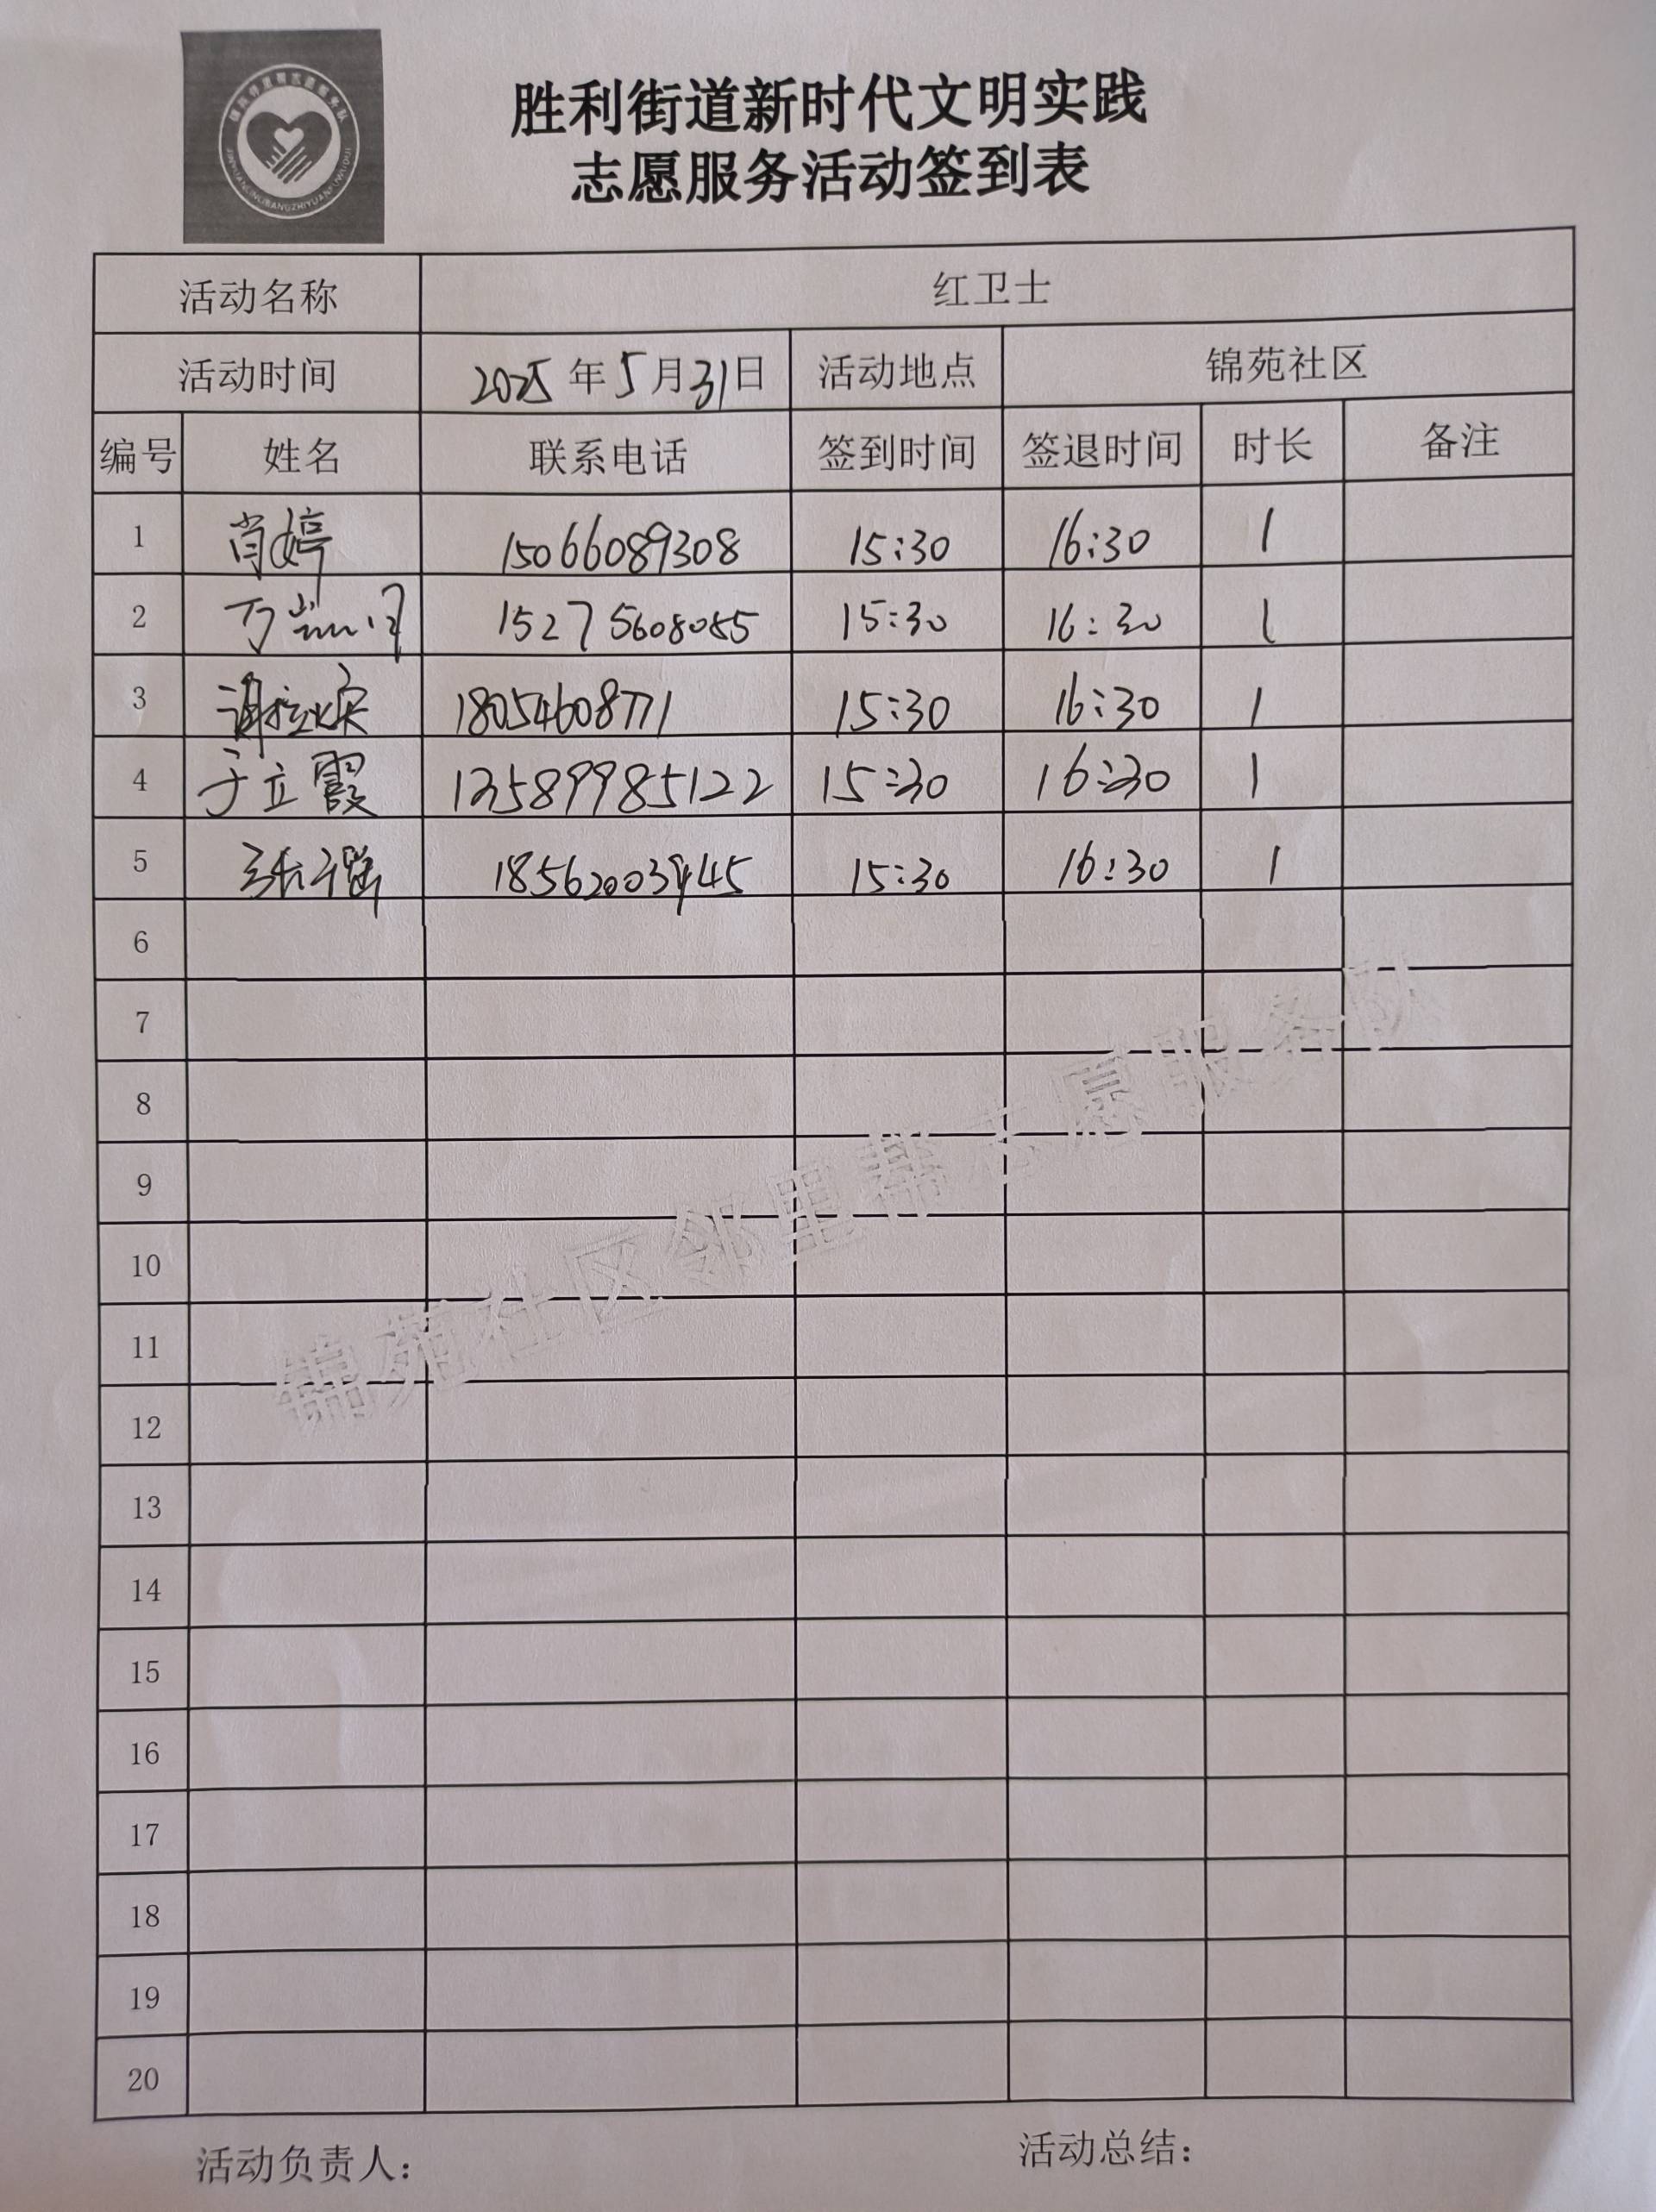 胜利街道新时代文明实践
志愿服务活动签到表
活动名称 红卫士
活动时间 2025年5月31日 活动地点 锦苑社区
编号 姓名 联系电话 签到时间 签退时间 时长 备注
1 肖婷 15066089308 15:30 16:30 1
2 15275608085 15:30 16:30 1
3 18054608771 15:30 16:30 1
4 于立霞 13589985122 15:30 16:30 1
5 18562003945 15:30 16:30 1
6
7
8
9
10
11
12
13
14
15
16
17
18
19
20
锦苑社区邻里帮志愿服务队
活动负责人： 活动总结：